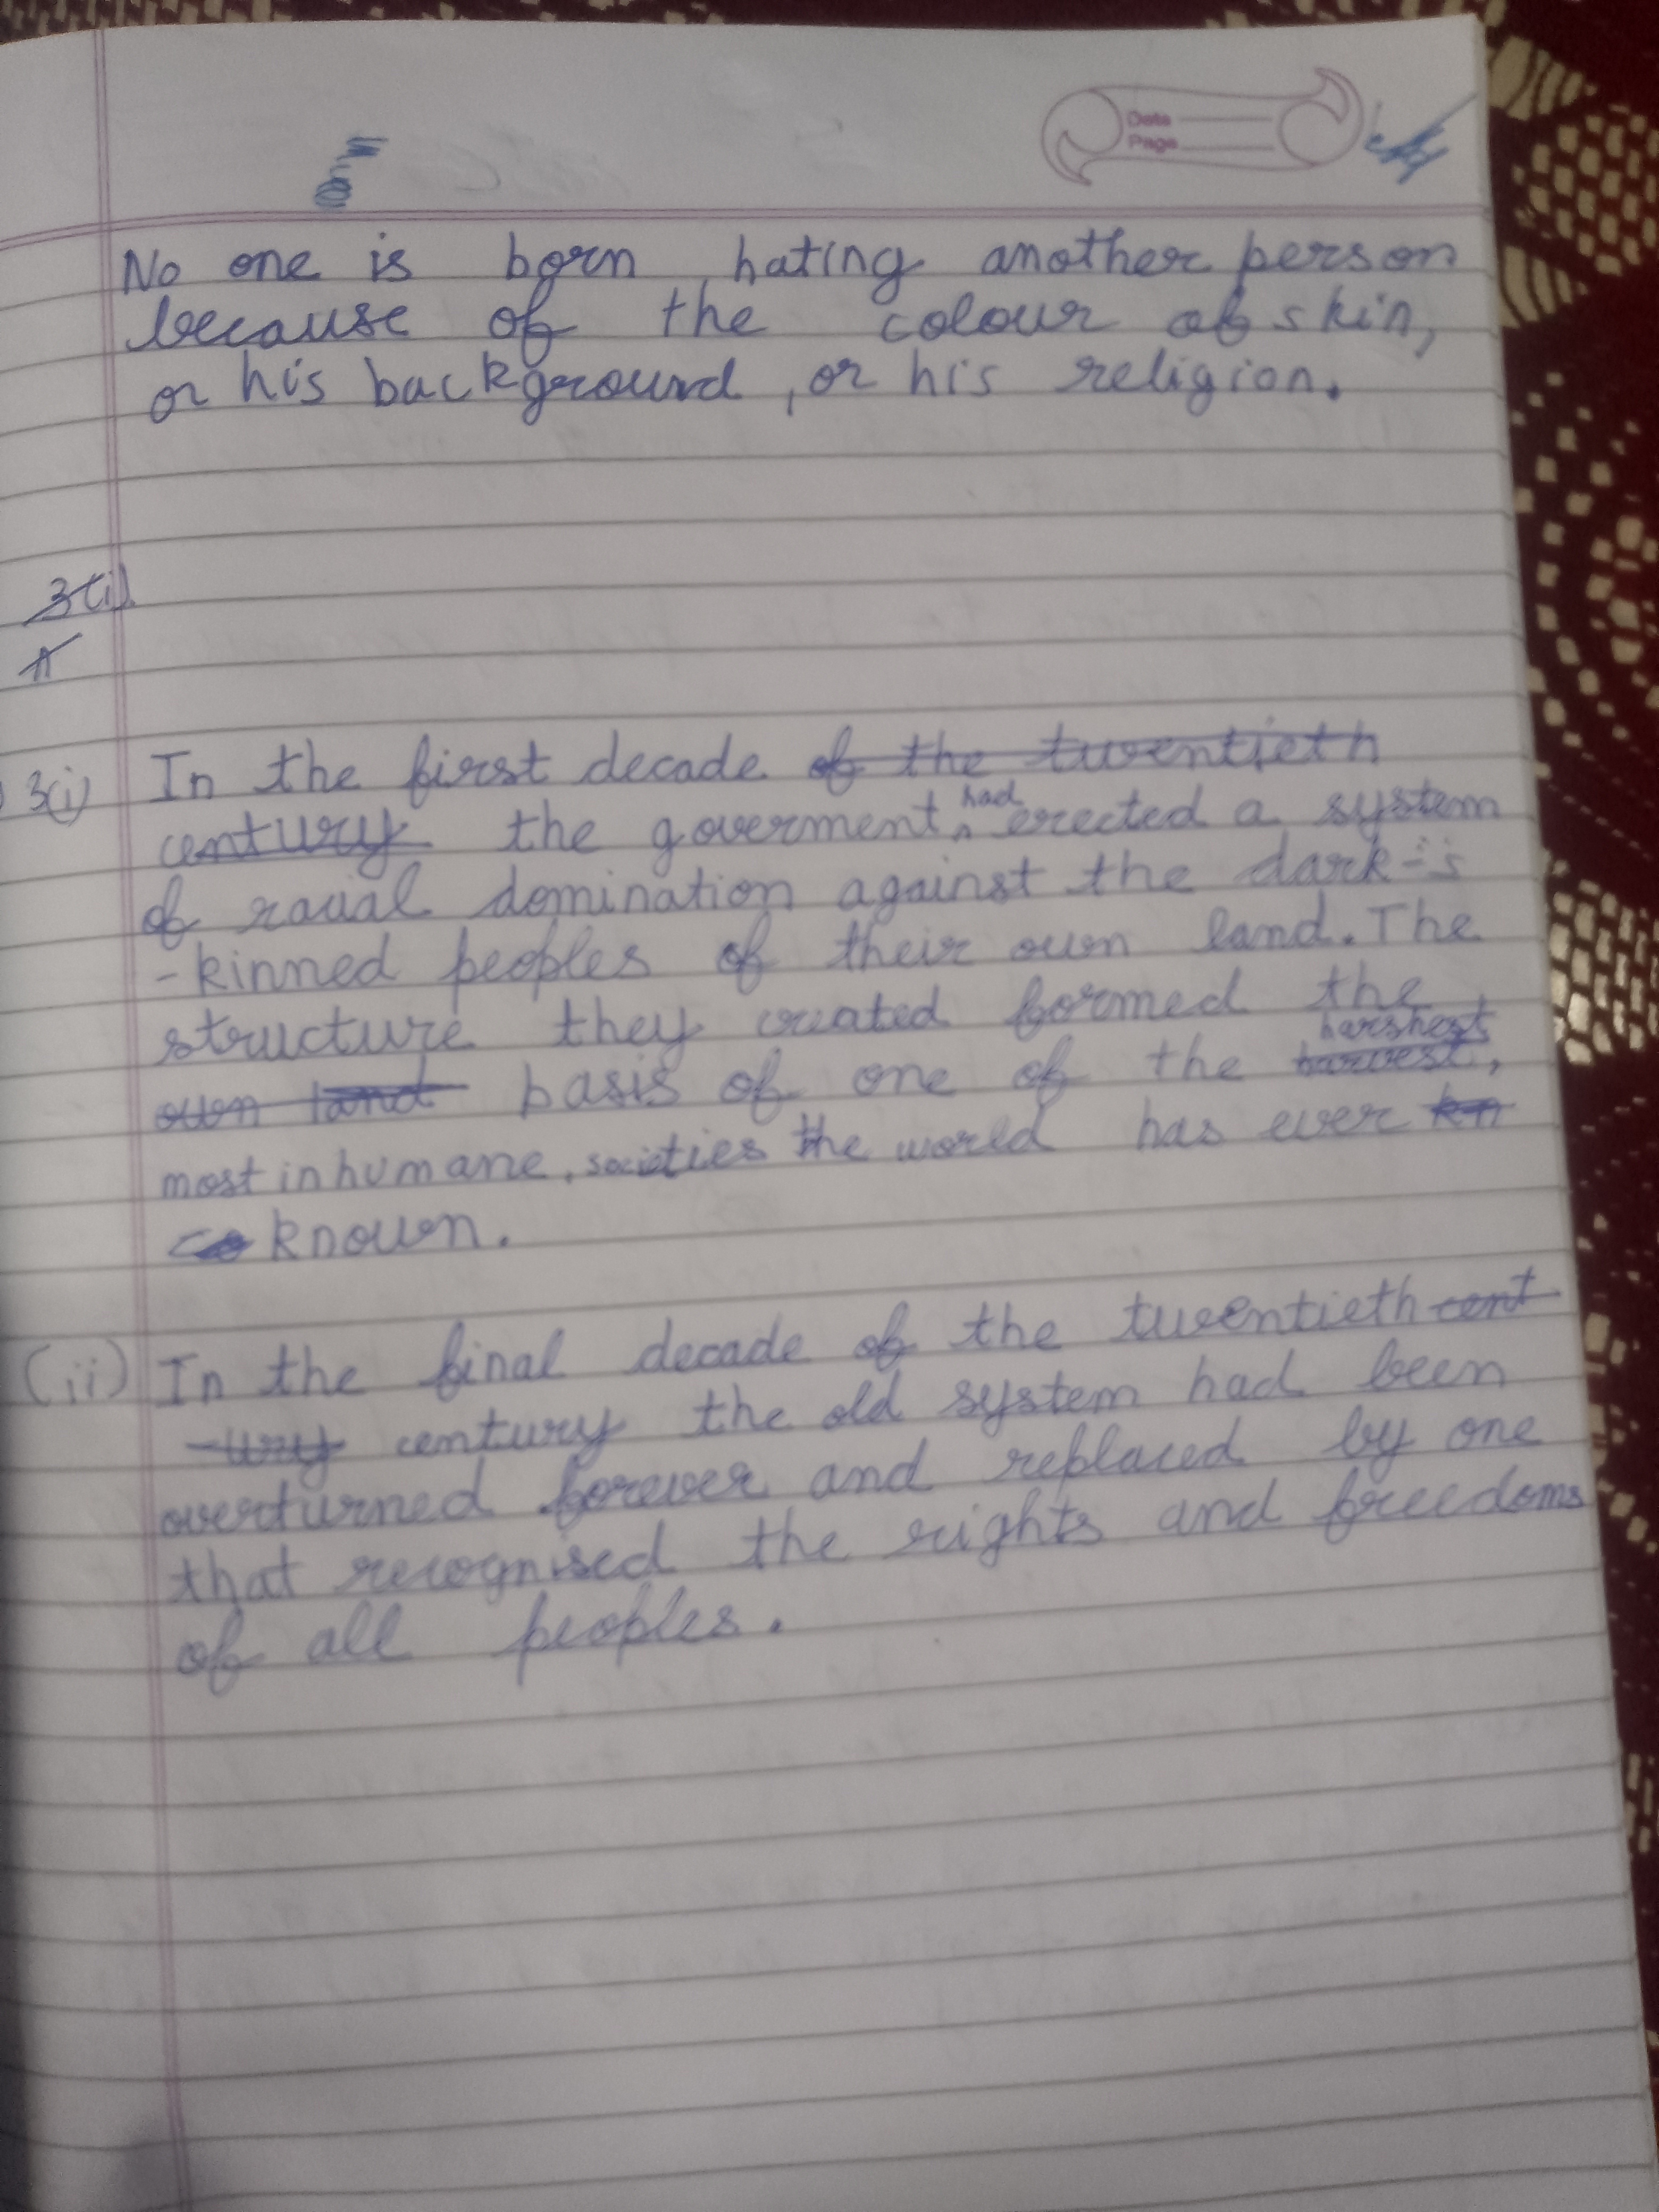 Date
Page
No one is born hating another person
because of the colour of skin,
or his background, or his religion.
3(i)
3(i) In the first decade of the twentieth
century the goverment had erected a system
of racial domination against the dark-s
-kinned peoples of their own land. The
structure they created formed the
own land basis of one of the harshest,
most inhumane, societies the world has ever kn
known.
(ii) In the final decade of the twentieth cent
-ury century the old system had been
overturned forever and replaced by one
that recognised the rights and freedoms
of all peoples.